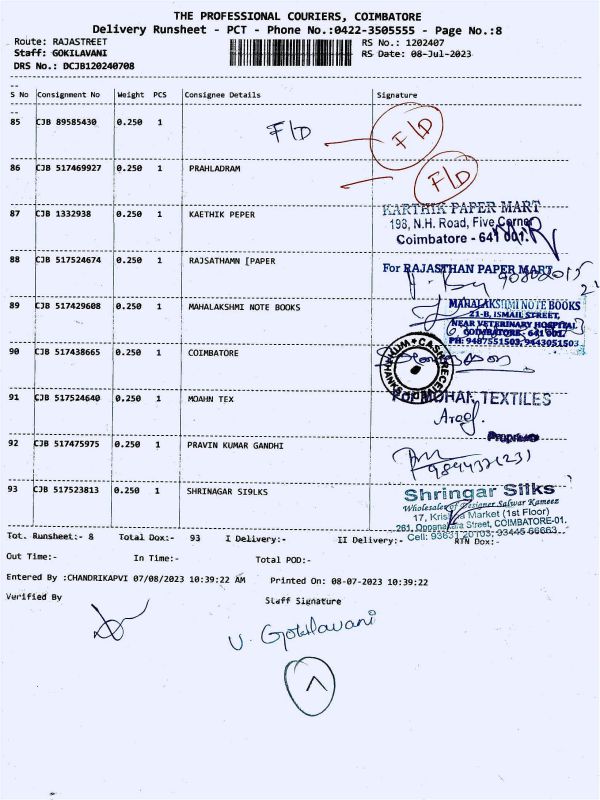 THE PROFESSIONAL COURIERS, COIMBATORE
Delivery Runsheet - PCT - Phone No.:0422-3505555 - Page No.:8
Route: RAJASTREET
RS No.: 1202407
Staff: GOKILAVANI
RS Date: 08-Jul-2023
DRS No.: DCJB120240708
S No Consignment No Weight PCS Consignee Details Signature
85 CJB 89585430 0.250 1 F/D F/D
86 CJB 517469927 0.250 1 PRAHLADRAM F/D
87 CJB 1332938 0.250 1 KAETHIK PEPER
KARTHIK PAPER MART
198, N.H. Road, Five Corner
Coimbatore - 641 001.
88 CJB 517524674 0.250 1 RAJSATHAMN [PAPER
For RAJASTHAN PAPER MART
89 CJB 517429608 0.250 1 MAHALAKSHMI NOTE BOOKS
MAHALAKSHMI NOTE BOOKS
21-B, ISMAIL STREET,
NEAR VETERINARY HOSPITAL
COIMBATORE - 641 001.
PH: 9487551503, 9443051503
90 CJB 517438665 0.250 1 COIMBATORE
91 CJB 517524640 0.250 1 MOAHN TEX
For MOHAN TEXTILES
92 CJB 517475975 0.250 1 PRAVIN KUMAR GANDHI
93 CJB 517523813 0.250 1 SHRINGAR SI9LKS
Shringar Silks
Wholesaler of Designer Salwar Kameez
17, Krishna Market (1st Floor)
261, Oppanakara Street, COIMBATORE-01.
Cell: 93631 20103, 93445 66663
Tot. Runsheet:- 8 Total Dox:- 93 I Delivery:- II Delivery:- RTN Dox:-
Out Time:- In Time:- Total POD:-
Entered By :CHANDRIKAPVI 07/08/2023 10:39:22 AM Printed On: 08-07-2023 10:39:22
Verified By Staff Signature
V. Gokilavani